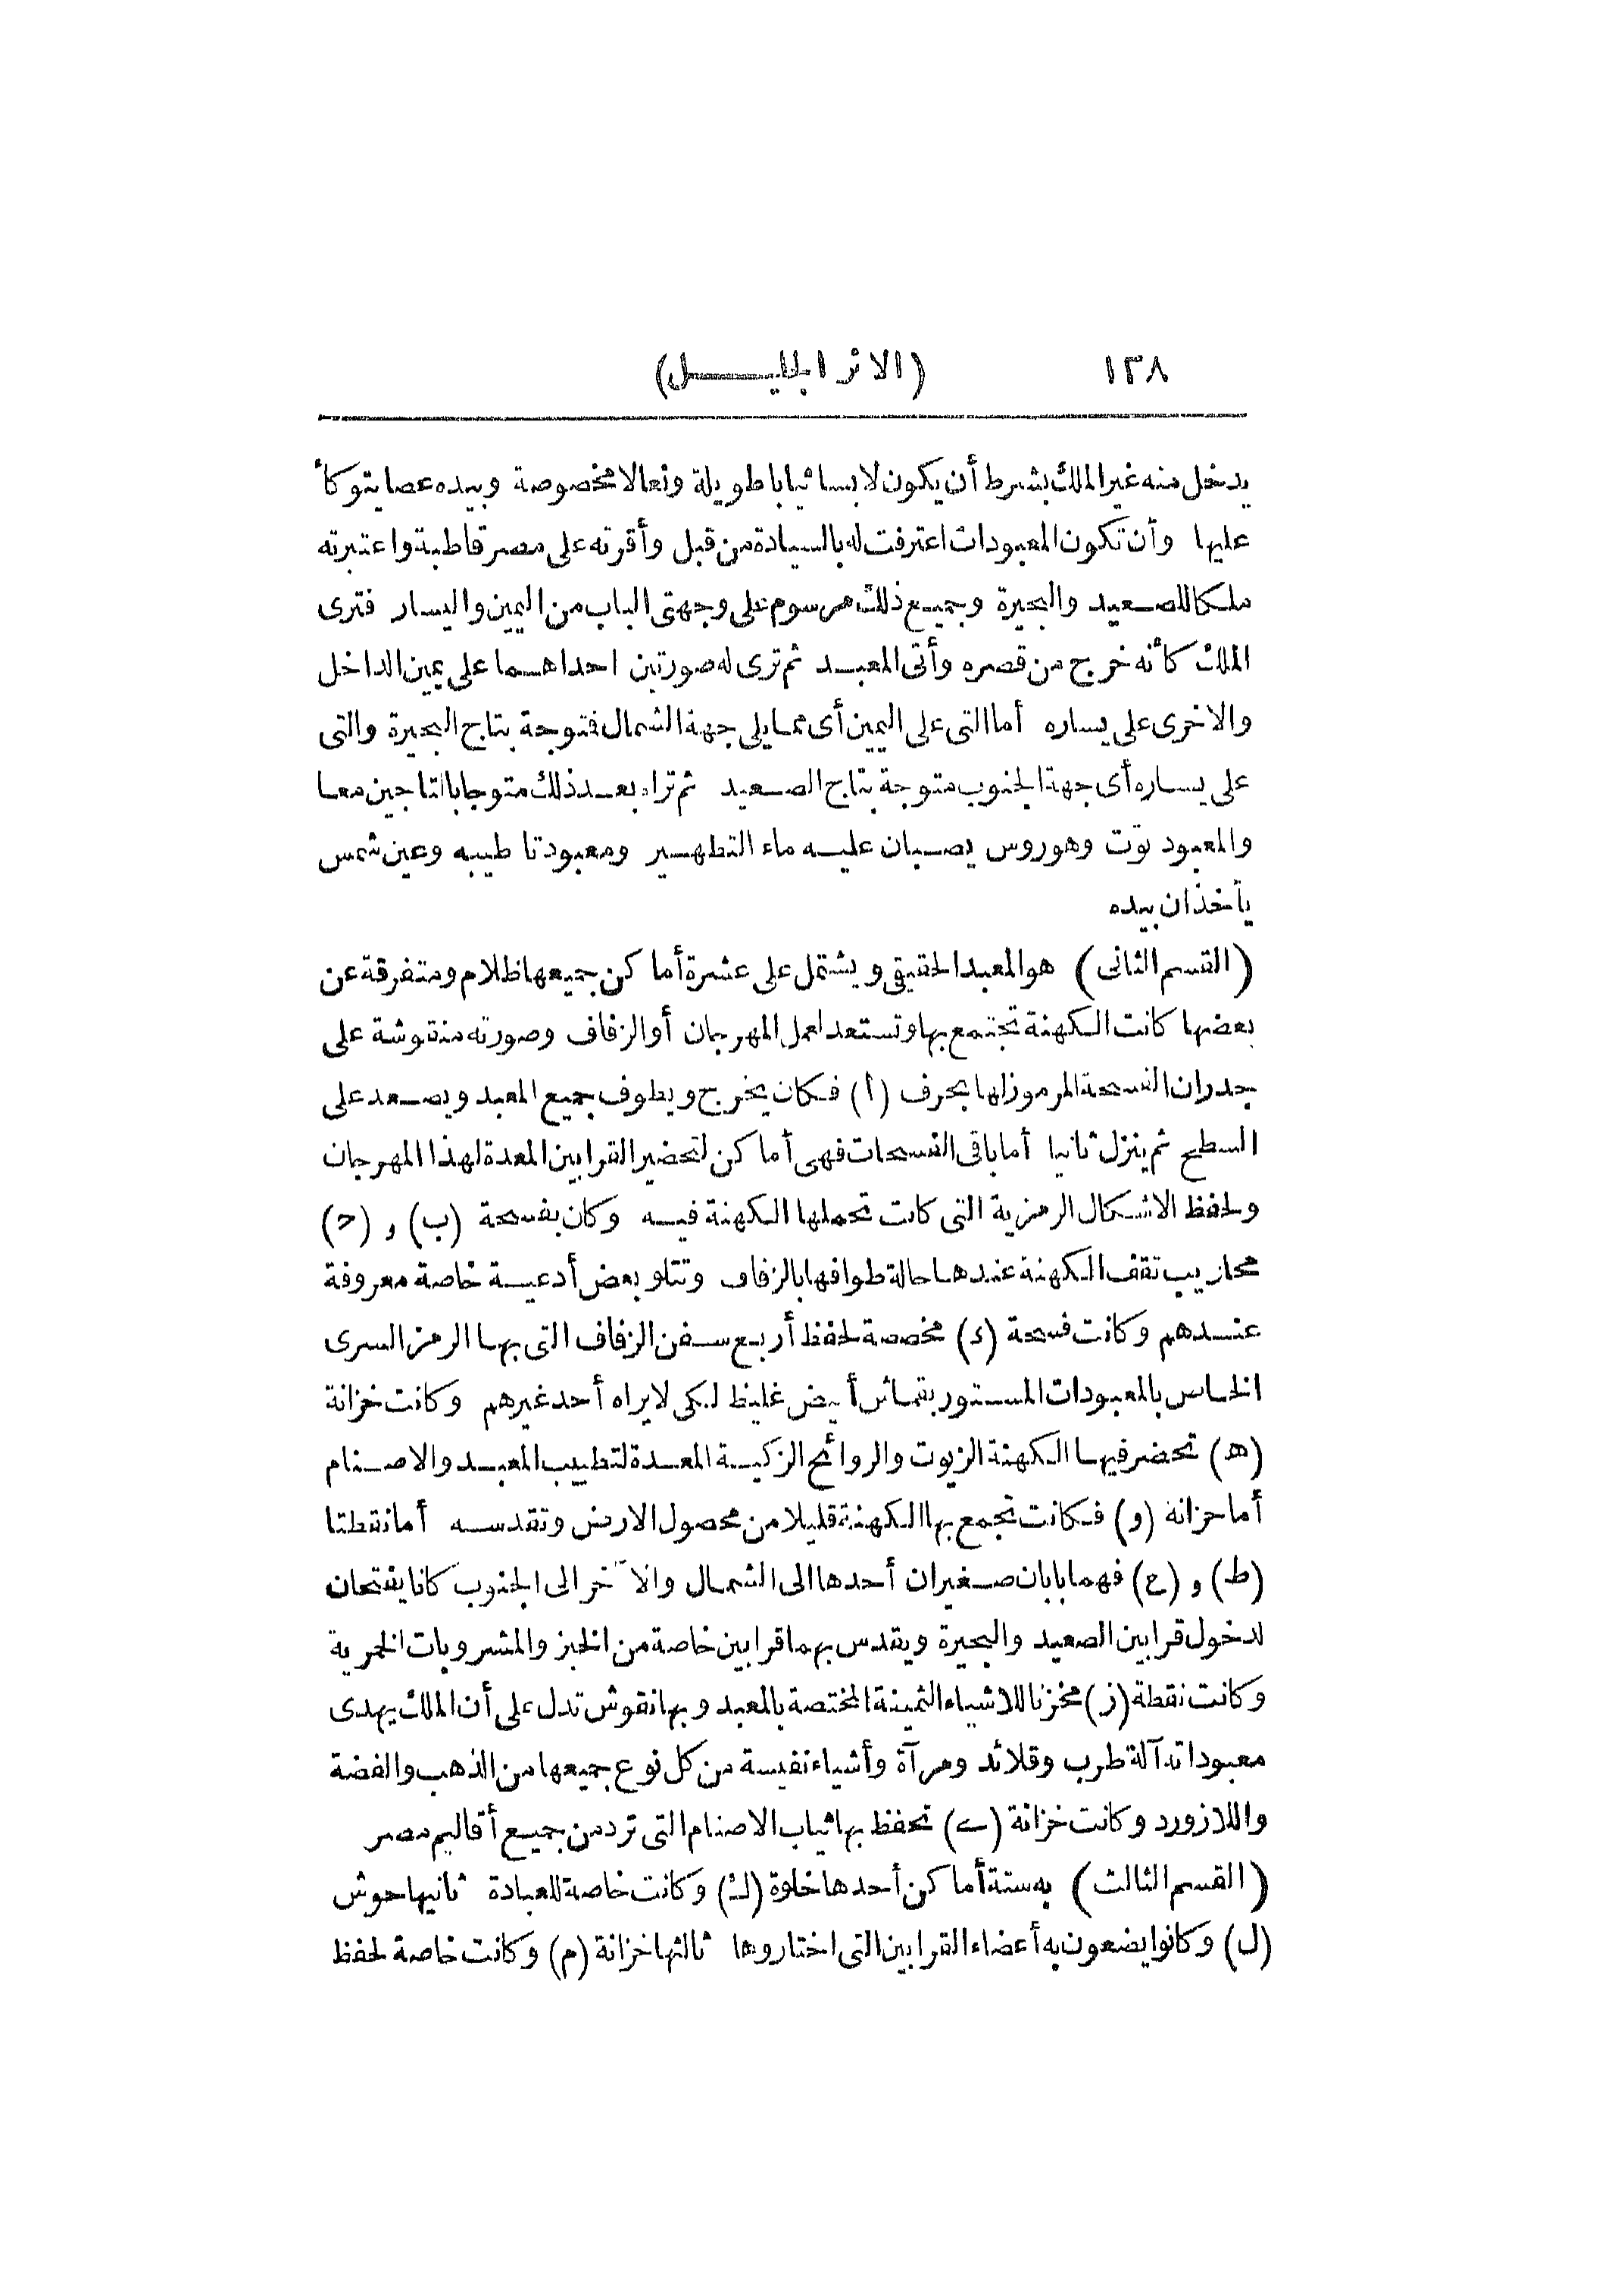 ١٣٨ (الاثر الجليل)
يدخل منه غير الملك بشرط أن يكون لابسا ثيابا طويلة ونعالا مخصوصة وبيده عصا يتوكأ
عليها وأن تكون المعبودات اعترفت له بالسيادة من قبل وأقرته على مصر قاطبة واعتبرته
ملكا للصعيد والبحيرة وجميع ذلك مرسوم على وجهتى الباب من اليمين واليسار فترى
الملك كأنه خرج من قصره وأتى المعبد ثم ترى له صورتين احداهما على يمين الداخل
والاخرى على يساره أما التى على اليمين أى مما يلى جهة الشمال فتوجة بتاج البحيرة والتى
على يساره أى جهة الجنوب متوجة بتاج الصعيد ثم تراه بعد ذلك متوجا بالتاجين معا
والمعبود توت وهوروس يصبان عليه ماء التطهير ومعبودتا طيبه وعين شمس
يأخذان بيده
(القسم الثانى) هو المعبد الحقيقى ويشتمل على عشرة أماكن جميعها ظلام ومتفرقة عن
بعضها كانت الكهنة تجتمع بها وتستعد لعمل المهرجان أو الزفاف وصورته منقوشة على
جدران الفسحة المرموز لها بحرف (أ) فكان يخرج ويطوف بجميع المعبد ويصعد على
السطح ثم ينزل ثانيا أما باقى الفسحات فهى أماكن لتحضير القرابين المعدة لهذا المهرجان
ولحفظ الاشكال الرمزية التى كانت تحملها الكهنة فيه وكان بفسحة (ب) و (ح)
محاريب تقف الكهنة عندها حالة طوافها بالزفاف وتتلو بعض أدعية خاصة معروفة
عندهم وكانت فسحة (د) مخصصة لحفظ أربع سفن الزفاف التى بها الرمز السرى
الخاص بالمعبودات المستور بقماش أبيض غليظ لكى لا يراه أحد غيرهم وكانت خزانة
(ه) تحضر فيها الكهنة الزيوت والروائح الزكية المعدة لتطييب المعبد والاصنام
أما خزانة (و) فكانت تجمع بها الكهنة قليلا من محصول الارض وتقدسه أما نقطتا
(ط) و (ع) فهما بابان صغيران أحدها الى الشمال والآخر الى الجنوب كانا يفتحان
لدخول قرابين الصعيد والبحيرة ويقدس بهما قرابين خاصة من الخبز والمشروبات الخمرية
وكانت نقطة (ز) مخزنا للاشياء الثمينة المختصة بالمعبد وبها نقوش تدل على أن الملك يهدى
معبوداته آلة طرب وقلائد ومرآة وأشياء نفيسة من كل نوع جميعها من الذهب والفضة
واللازورد وكانت خزانة (ے) تحفظ بها ثياب الاصنام التى ترد من جميع أقاليم مصر
(القسم الثالث) به ستة أماكن أحدها خلوة (ك) وكانت خاصة للعبادة ثانيها حوش
(ل) وكانوا يضعون به أعضاء القرابين التى اختاروها ثالثها خزانة (م) وكانت خاصة لحفظ